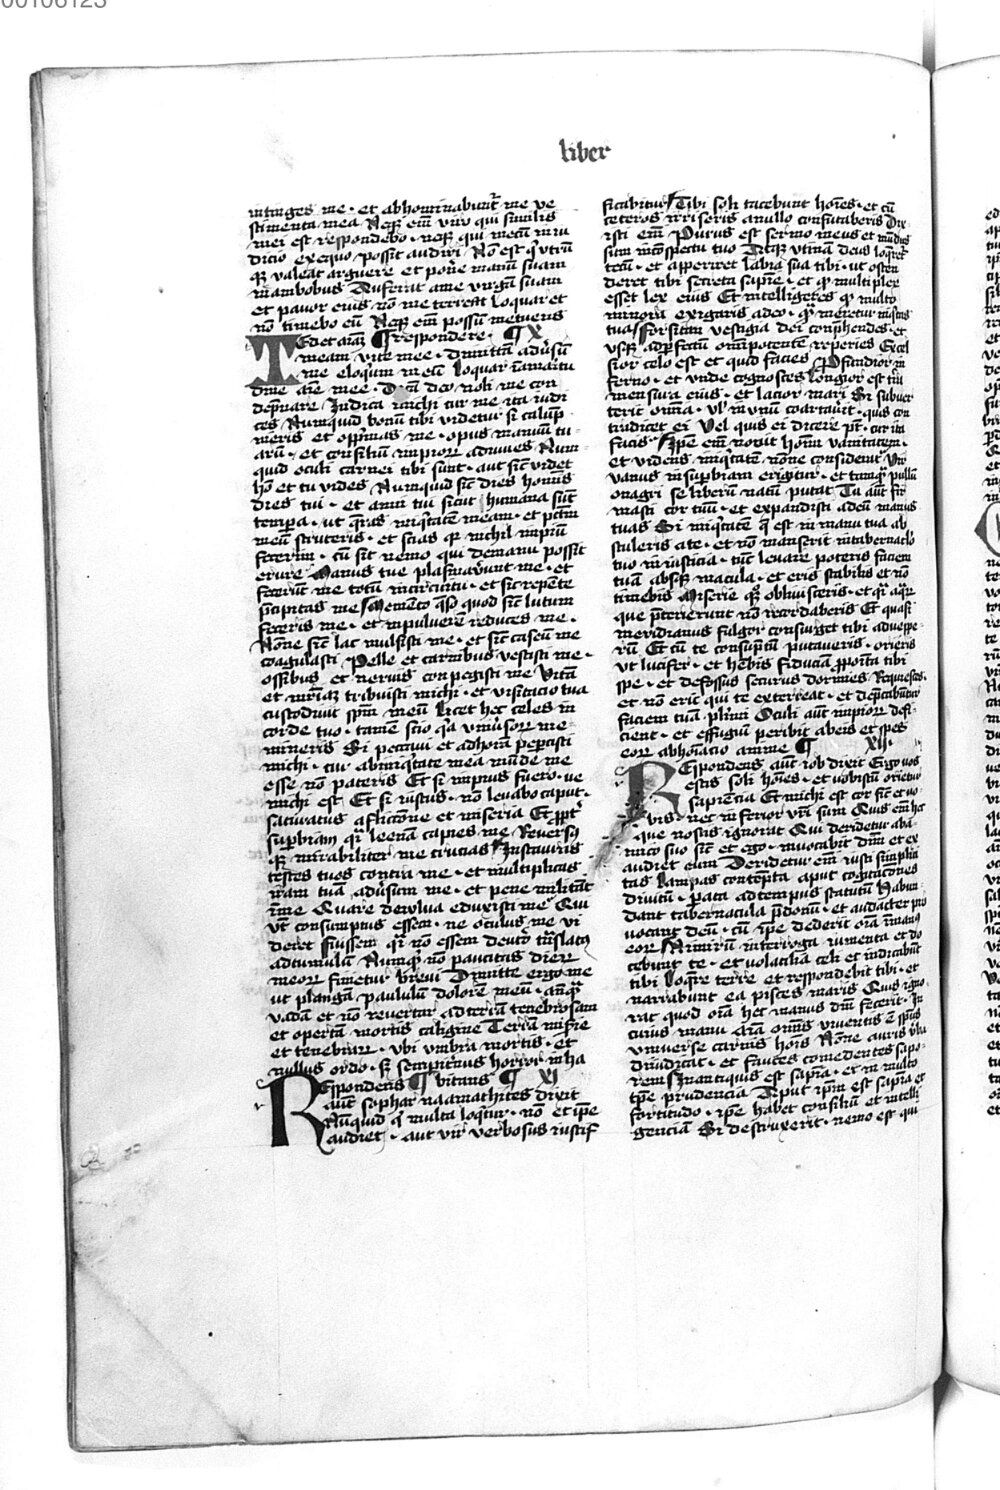 liber
intinges me · et abhominabunt͛ me ve
stimenta mea Neq̄ em̄ viro qui similis
mei est respondebo · neq̄ qui mecū in iu
dicio exequo possit audiri Nō est q̄ vtrūq̄
q̄ valeat arguere et pon̄e manū suam
in ambobus Auferat a me virgā suam
et pavor eius nō me terreat Loquar et
nō timebo eū Neq̄ em̄ possū metuens
respondere · X
Tedet aīaꝫ
meam vite mee · dimittā adūsū
me eloqium meū Loquar ī amaritu
dīne aīe mee · Dicā deo noli me con
dēpnare Indica michi cur me ita iudi
ces Numquid bonū tibi videtur si calūp
nieris et opp̄mas me · opus manuū tu
arū · et consiliū impioꝝ adiuves Num
quid oculi carnei tibi sunt · aut sic̄ videt
hō et tu vides Numquid sic̄ dies hominis
dies tui · et anni tui sicut humana sūt
tempa · ut q̄ras iniq̄tatē meam · et pctm̄
meū scruteris · et scias q̄ nichil impiū
fecerim · cū sit nemo qui de manu possit
eruere Manus tue plasmav̄unt me · et
fecerūt me totū in circuitu · et sic repēte
p̄cipitas me Memēto q̄so quod sic̄ lutum
feceris me · et in pulvere reduces me ·
Nōne sic̄ lac mulsisti me · et sic̄ caseū me
coagulasti Pelle et carnibus vestisti me ·
ossibus et nervis conpegisti me Vitā
et mīaꝫ tribuisti michi · et visitacio tua
custodiuit spm̄ meū Licet hec celes in
corde tuo · tamē scio q̄a vniūsoꝝ me
mineris Si peccavi et ad horā pepcisti
michi · cur ab iniq̄tate mea mūde me
esse nō pateris Et si impius fuero · ve
michi est Et si iustus · nō levabo caput ·
saturatus afflictōne et miseria Et ppt͛
supbiam q̄ leenā capies me Reversq̄
q̄ mirabiliter me crucias Instauras
testes tuos contra me · et multiplicas
iram tuā adūsum me · et pene militāt
ī me Quare de vulva eduxisti me Qui
vt̄ consumptus essem · ne oculus me vi
deret Fuissem q̄i nō essem de ut̄o trāslatꝰ
ad tumulū Numq̄ nō paucitas dieꝝ
meoꝝ finietur brevi Dimitte ergo me
ut plangā paululū dolorē meū · anteq̄
vadā et nō revertar ad terrā tenebrosam
et opertā mortis caligine Terrā miserie
et tenebraꝝ · vbi vmbra mortis · et
nullus ordo · sꝫ sempit̄nus horror inha
bitans XI
Respondens
aut̄ sophar naamathites dixit
Nūquid q̄ multa loqtur · nō et ip̄e
audiet · aut vir verbosus iustif
ficabitur Tibi soli tacebunt hoīes · et cū
ceteros irriseris a nullo confutaberis Dix
isti em̄ Purus est sermo meus et mūdus
sum in cōspectu tuo Atq̄ vtinā deus loq̄ret͛
tecū · et apperiret labia sua tibi · ut osten
deret tibi secreta sapīe · et q̄ multiplex
esset lex eius Et intelligeres q̄ multo
minora exigaris a deo · q̄ meretur iniqtas
tua Forsitan vestigia dei conp̄hendes · et
vsq̄ ad pfectū omīpotentē reperies Excel
sior celo est et quid facies Pfundior in
ferno · et vnde cognosces Longior est trā
mensura eius · et lacior mari Si subver
terit omīa · vl̄ in vnū coartav̄it · quis con
tradicet ei Vel quis ei dicere pt̄ · cur ita
facis Ipse em̄ novit hoīm vanitatem ·
et videns iniq̄tatē nōne considerat Vir
vanus in supbiam erigitur · et tamq̄ pullū
onagri se liberū natū putat Tu aūt fir
masti cor tuū · et expandisti ad eū manus
tuas Si iniq̄tatē q̄ est in manu tua ab
stuleris a te · et nō manserit in tabernac̄lo
tuo iniusticia · tūc levare poteris faciem
tuā absq̄ macula · et eris stabilis et nō
timebis Miserie q̄ꝫ oblivisceris · et q̄i aq̄ꝝ
que p̄terierunt nō recordaberis Et quasi
meridianus fulgor consurget tibi ad vespe
rū Et cū te consūptū putaveris · orieris
vt lucifer · et hēbis fiduciā pposita tibi
spe · et defossus securus dormies Requiesces
et nō erit qui te exterreat · et dep̄cabūtur
faciem tuā plīmi Oculi aūt impioꝝ defi
cient · et effugiū peribit ab eis et spes
eoꝝ abhoīacio anime XII
Respondens aūt iob dixit Ergo vos
estis soli hoīes · et vobiscū orietur
sapiēcia Et michi est cor sic̄ et vo
bis · nec inferior vr̄i sum Quis em̄ hec
que nostis ignorat Qui deridetur ab a
mico suo sic̄ et ego · invocabit dm̄ et ex
audiet eum Deridetur em̄ iusti simplici
tas Lampas contēpta aput cogitacōnes
divitū · parata ad tempus statutū Habun
dant tabernacula p̄donū · et audacter pro
vocant deū · cū ip̄e dederit oīa ī manꝰ
eoꝝ Nimirū interroga iumenta et do
cebunt te · et volatilia celi et indicabūt
tibi Loq̄re terre et respondebit tibi · et
narrabunt ea pisces maris Quis igno
rat quod oīa hec manus dm̄ fecerit · In
cuius manu aīa omīs viventis ē spūs
vniverse carnis hoīs Nōne auris v̄ba
diiudicat · et fauces comedentes sapo
rem In antiquis est sapīa · et in multo
tp̄e prudencia Aput ip̄m est sapīa et
fortitudo · ip̄e habet consiliū et intelli
genciā Si destruxerit · nemo est qui